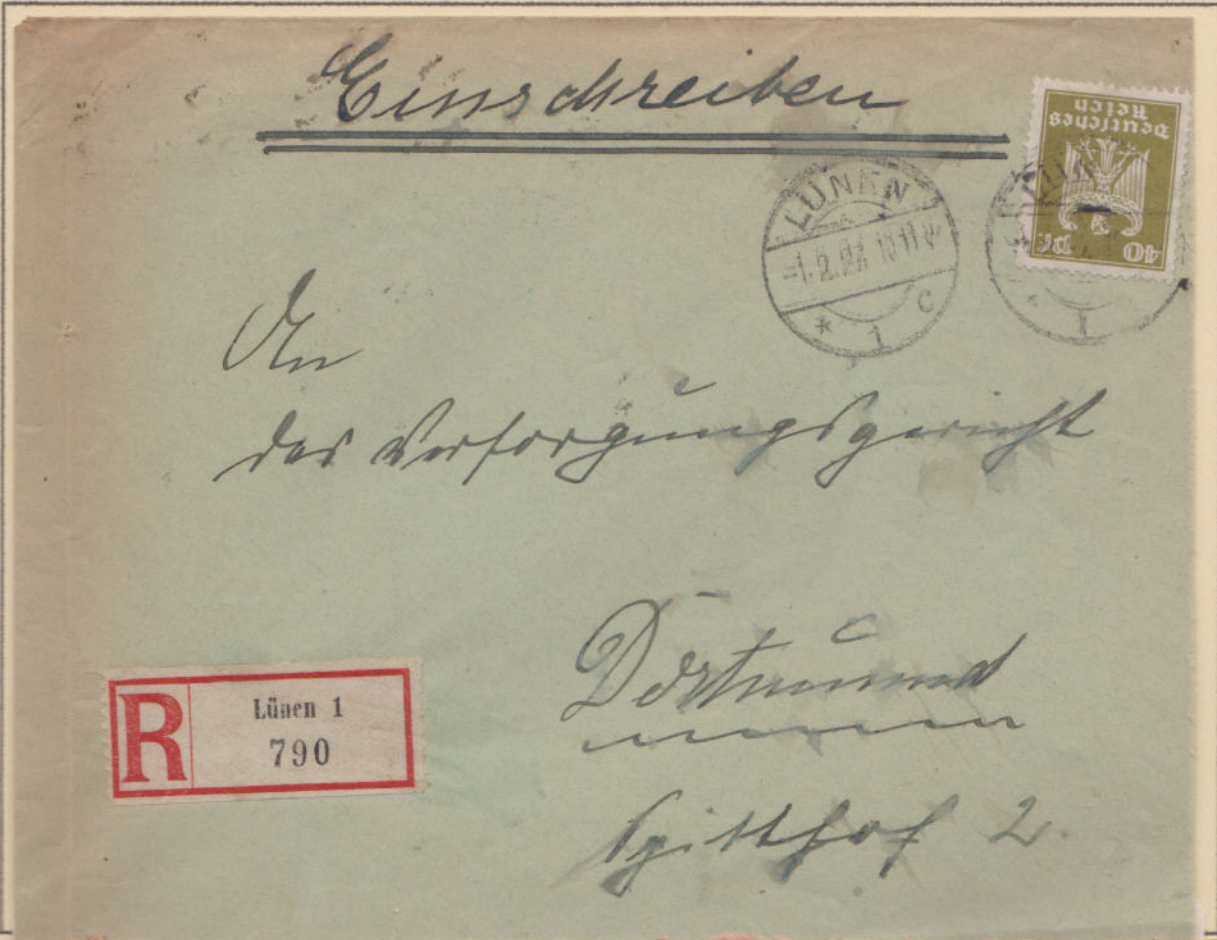 Einschreiben
Deutsches
Reich
40 Pf
LÜNEN
-1.2.27. 10-11 V
* 1 c
* 1
An
das Versorgungsgericht
Dortmund
R
Lünen 1
790
2